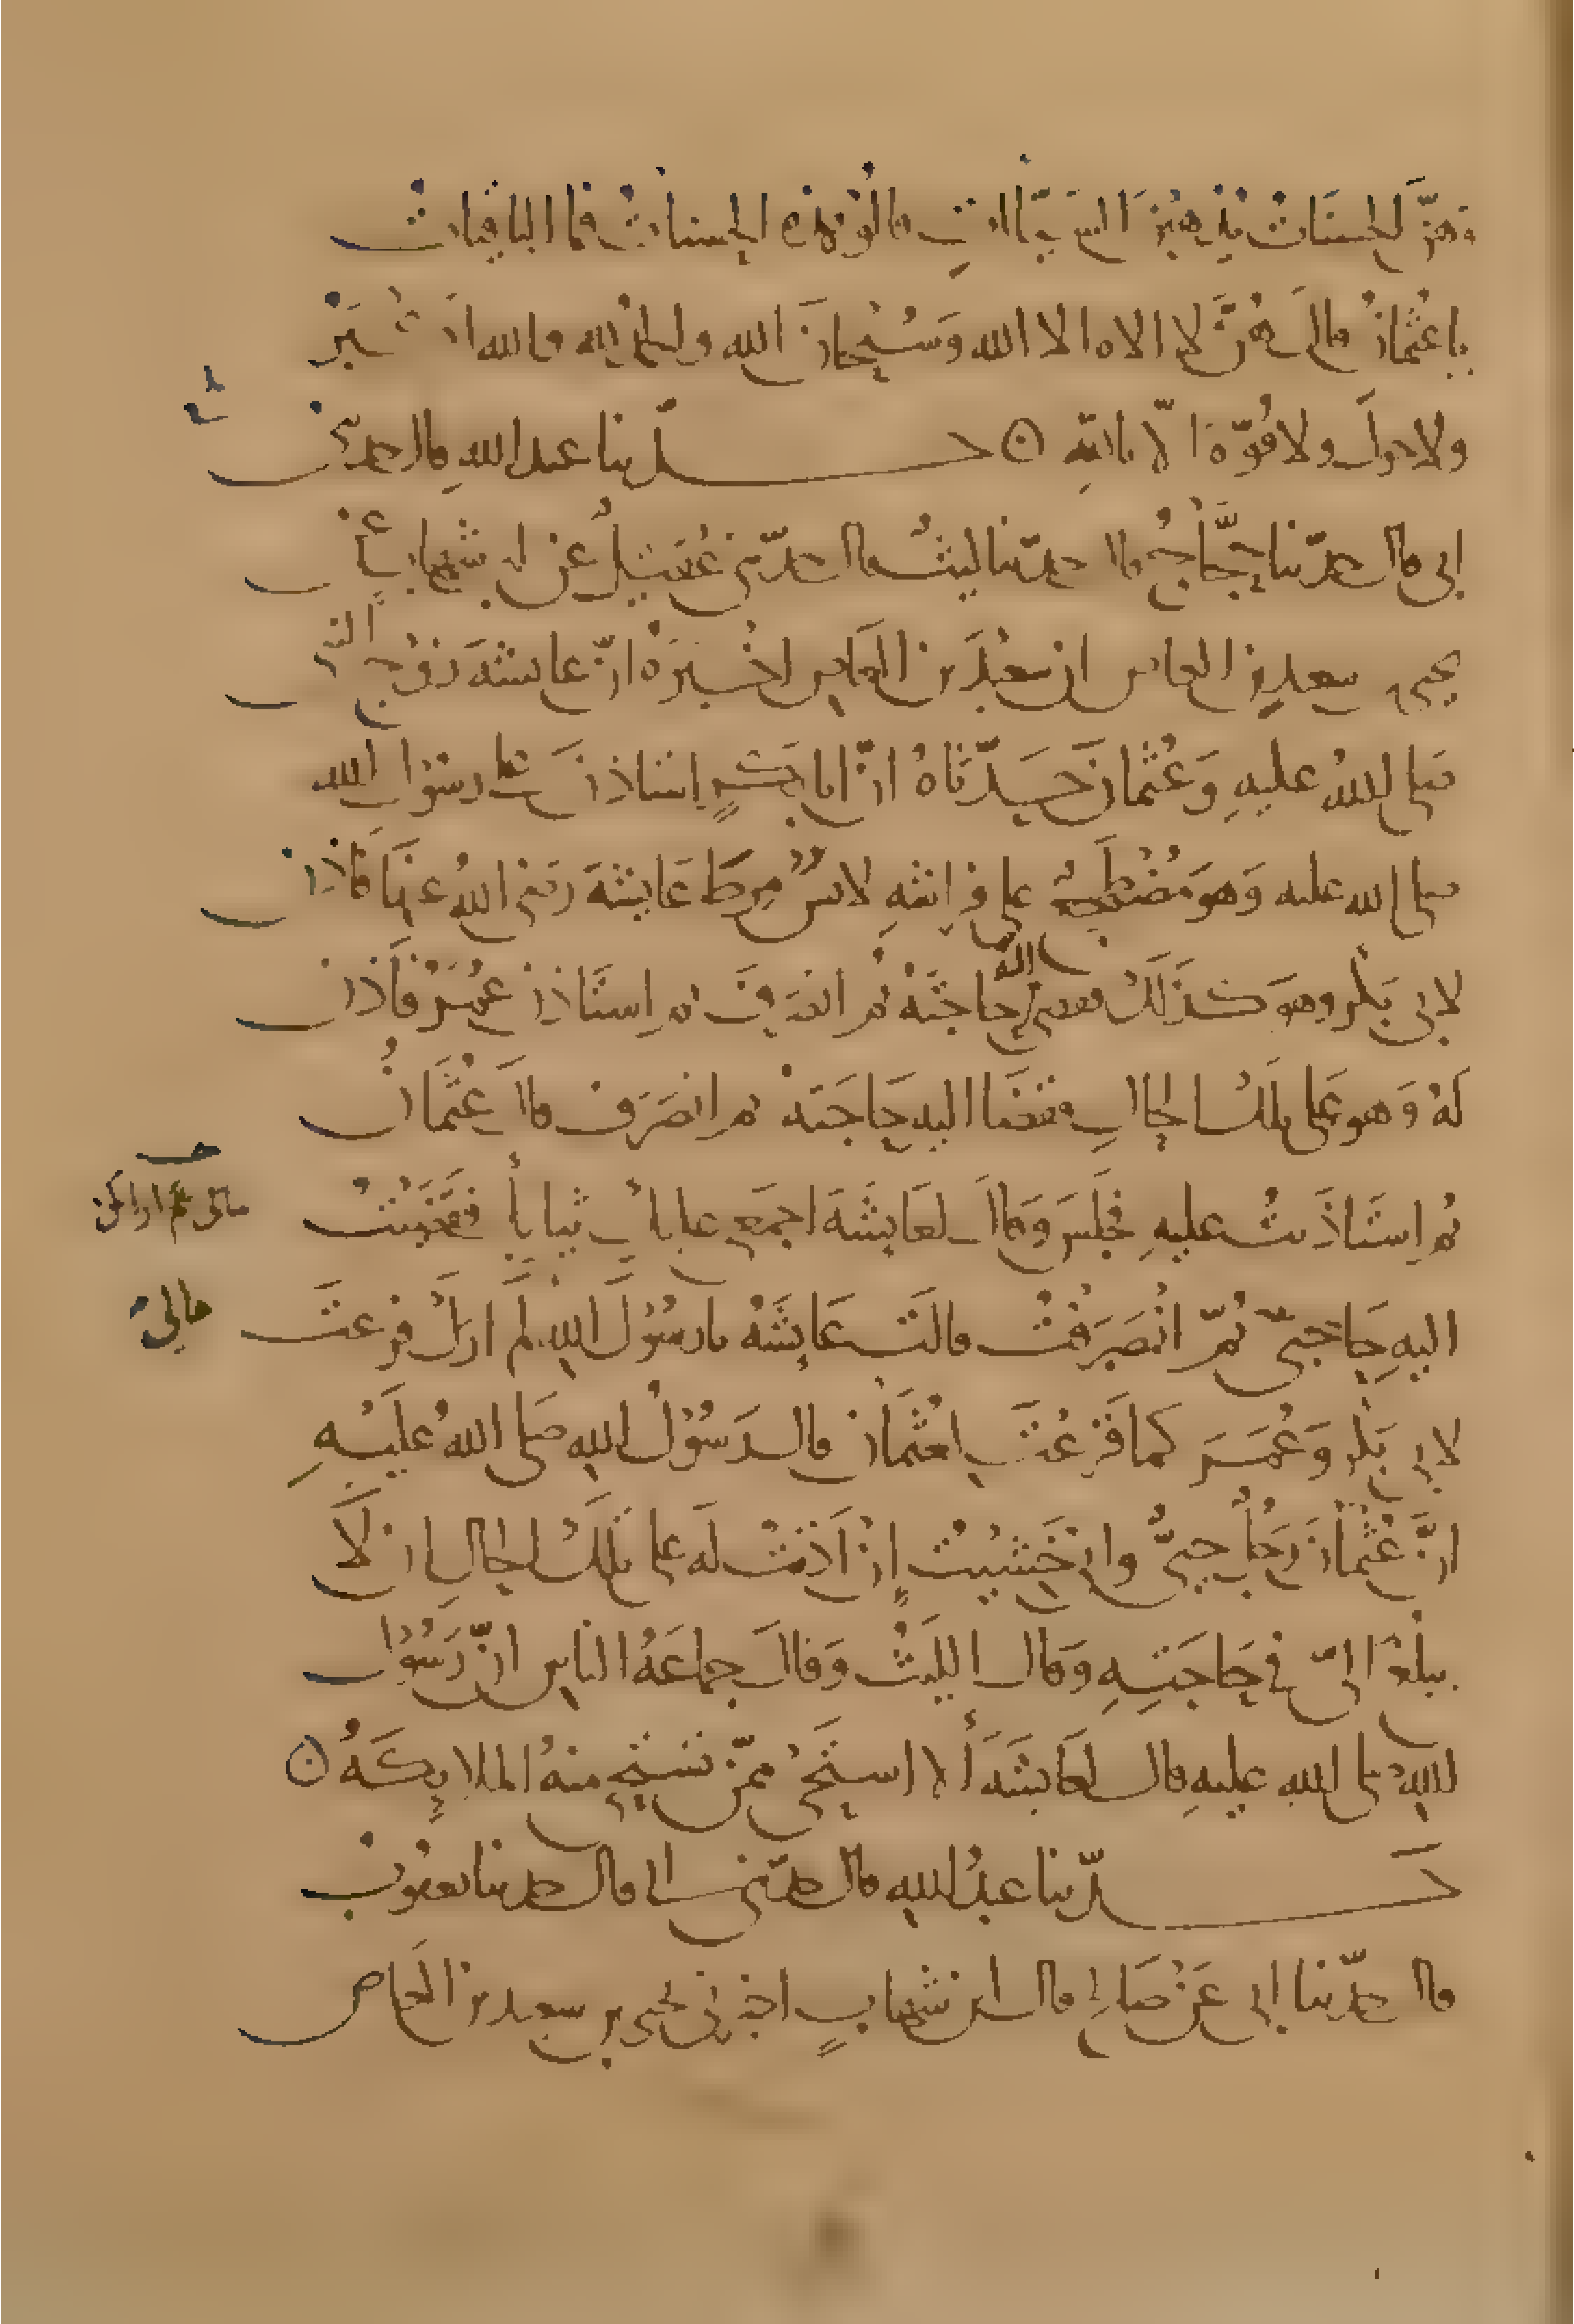 وهنّ الحسنات يذهبن السيّاات قالوا هذه الحسنات فما الباقيات
يا عثمان قال هنّ لا الاه الا الله وسبحان الله والحمد لله والله اكبر
ولا حول ولا قوّة الّا بالله ۞ حدّثنا عبد الله قال حدثني
ابي قال حدّثنا حجّاج قال حدّثنا ليث قال حدّثني عقيل عن ابن شهاب عن
يحيى بن سعيد بن العاص ان سعيد بن العاص اخبره انّ عايشة زوج النبي
صلى الله عليه وعثمان حدّثاه انّ ابا بكر استاذن على رسول الله
صلى الله عليه وهو مضطجع على فراشه لابس مرط عايشة رضي الله عنها فاذن
لابي بكر وهو كذلك فقضى اليه حاجته ثم انصرف ثم استاذن عمر فاذن
له وهو على تلك الحال فقضا اليه حاجته ثم انصرف قال عثمان
ثم استاذنت عليه فجلس وقال لعايشة اجمعي عليك ثيابك فقضيت
مالي لم ارك
اليه حاجتي ثمّ انصرفت قالت عايشة يا رسول الله لم ارك فزعت
مالي
لابي بكر وعمر كما فزعت لعثمان قال رسول الله صلى الله عليه
انّ عثمان رجل حييّ واني خشيت ان اذنت له على تلك الحال ان لا
يبلغ اليّ في حاجته وقال الليث وقال جماعة الناس انّ رسول
الله صلى الله عليه قال لعايشة ألا استحي ممّن تستحي منه الملايكة ۞
حدّثنا عبد الله قال حدّثني ابي قال حدثنا يعقوب
قال حدّثنا ابي عن صالح قال ابن شهاب اخبرني يحيى بن سعيد بن العاص